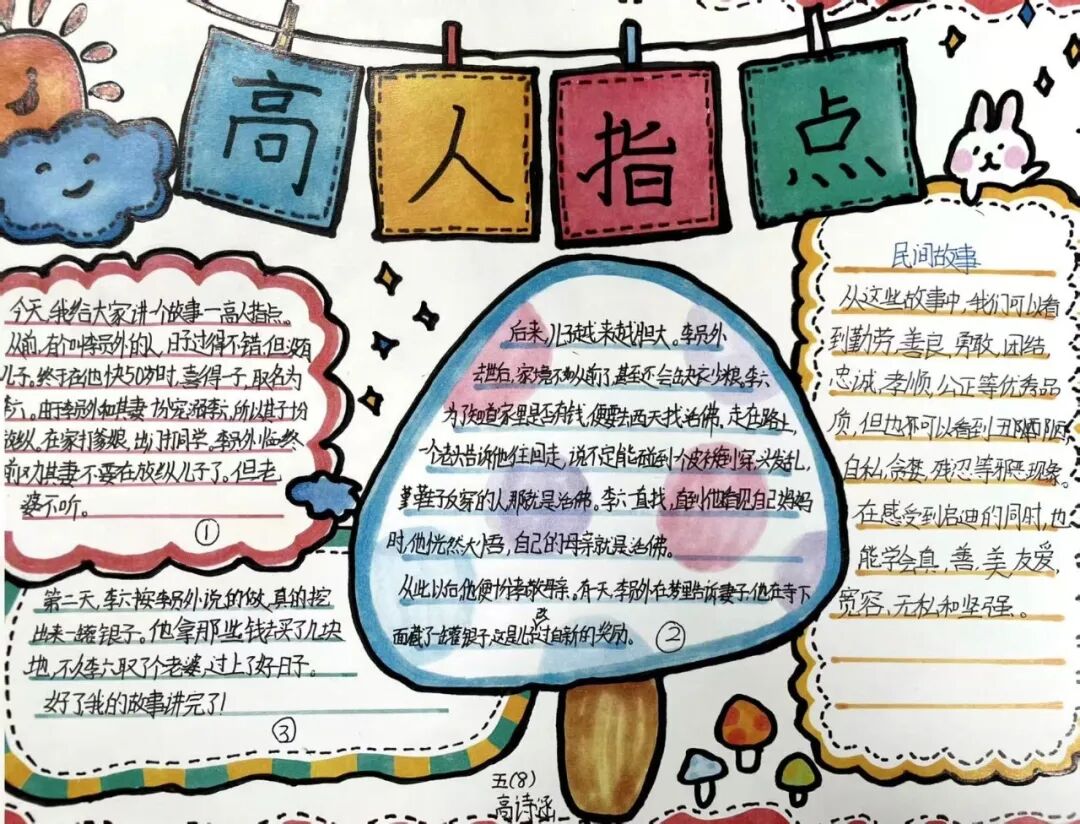 高人指点
今天,我给大家讲一个故事—高人指点。
从前,有个叫李员外的人,日子过得不错,但没有
儿子。终于在他快50岁时,喜得一子,取名为
李六。由于李员外和其妻十分宠溺李六,所以其十分
放纵。在家打爹娘,出门打同学。李员外临终
前叮其妻不要在放纵儿子了。但老
婆不听。
①
后来,儿子越来越胆大。李员外
去世后,家境不如从前了,甚至还会缺衣少粮。李六
为了知道家里是否有钱,便要去西天找活佛。走在路上,
一个老头告诉他往回走,说不定能碰到个皮袄穿,头发乱,
鞋子反穿的人,那就是活佛。李六一直找,直到他看见自己妈妈
时,他恍然大悟,自己的母亲就是活佛。
从此以后他便十分孝敬母亲。有一天,李员外在梦里告诉妻子,他在寺下
面藏了一罐银子,这是儿子改过自新的奖励。
②
第二天,李六按李员外说的做,真的挖
出来一罐银子。他拿那些钱去买了几块
地,不久李六取了个老婆,过上了好日子。
好了我的故事讲完了!
③
民间故事
从这些故事中,我们可以看
到勤劳,善良,勇敢,团结,
忠诚,孝顺,公正等优秀品
质,但也都可以看到丑陋
自私,贪婪,残忍等邪恶现象。
在感受到启迪的同时,也
能学会真,善,美,友爱,
宽容,无私和坚强。
五(8)
高诗涵